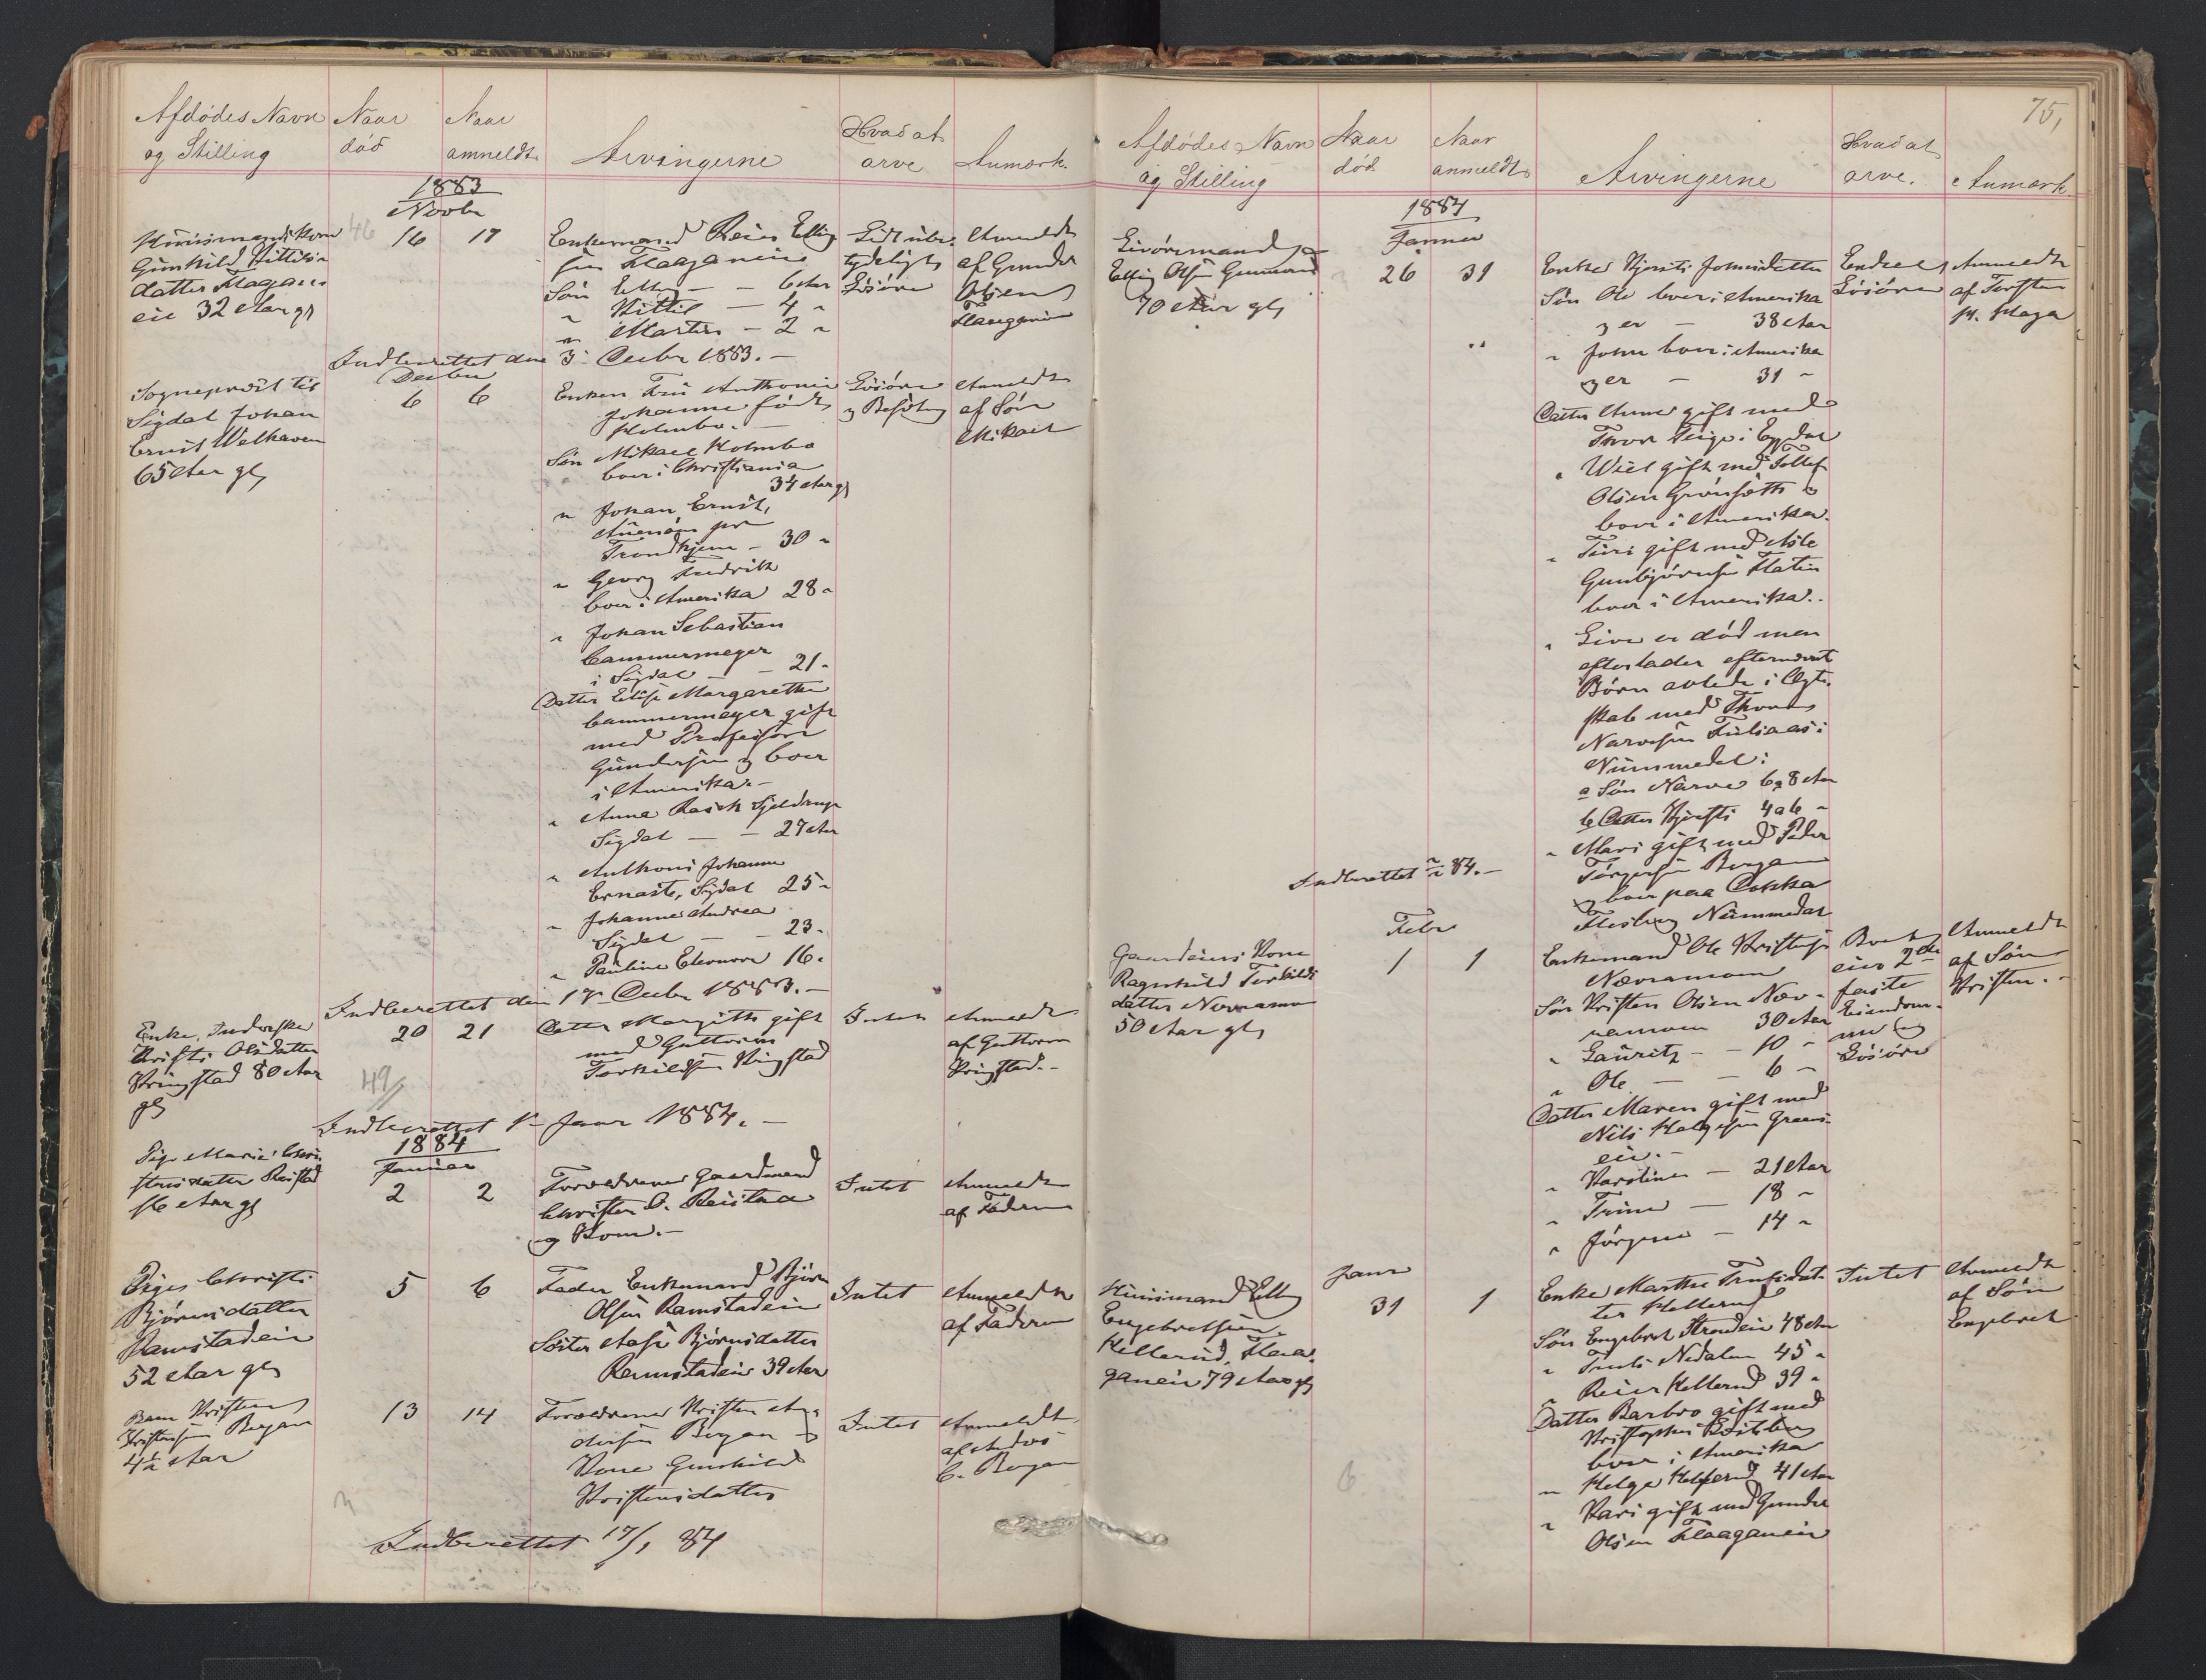 Afdødes Navn
og Stilling
Naar
død
Naar
anmeldt
Arvingerne
Hvad at
arve
Anmærk.
1883
Novbr
Husmandskone
Gunhild Kittils-
datter Flagan-
eie 32 Aar gl
46
16
17
Enkemand Reier Elling-
sen Flaaganeie
Søn Elling — — 6 Aar
" Kittil — 4 "
" Martin — 2 "
Lidt ube-
tydeligt
Løsøre
Anmeldt
af Gunder
Olsen
Flaaganeie
Indberettet den 3. Decbr 1883. —
Decbr
Sogneprest til
Sigdal Johan
Ernst Welhaven
65 Aar gl
6
6
Enken Fru Anthonie
Johanne født
Holmbo. —
Søn Mikael Holmbo
boer i Christiania
34 Aar gl
" Johan Ernst,
pr
Trondhjem — 30 "
" Georg Fredrik
boer i Amerika 28 "
" Johan Sebastian
Cammermeyer
i Sigdal — — 21 "
Datter Elise Margarethe
Cammermeyer gift
med Professor
Gundersen og boer
i Amerika. —
" Anna Rasch Gjeldrup
Sigdal — — 27 Aar
" Anthoni Johanne
Ernaste, Sigdal 25 "
" Johanne Andrea
Sigdal — — 23 "
" Pauline Eleonore 16 "
Løsøre
og Besætning
Anmeldt
af Søn
Mikael
Indberettet den 17 Decbr 1883. —
Enke, Inderske
Kristi Olsdatter
Kringstad 80 Aar
gl
20
21
Datter Margitte gift
med Guttorm
Torkildsen Kringstad
Intet
Anmeldt
af Guttorm
Kringstad. —
49/
Indberettet 1 — Januar 1884. —
1884
Januar
Pige Marie Chri-
stensdatter Reistad
16 Aar gl
2
2
Forældrene Gaardmand
Christen O. Reistad
og Kone. —
Intet
Anmeldt
af Faderen
Pige Christi
Bjørnsdatter
Ramstadeie
52 Aar gl
5
6
Fader Enkemand Bjørn
Olsen Ramstadeie
Søster Aase Bjørnsdatter
Ramstadeie 39 Aar
Intet
Anmeldt
af Faderen
Barn Kristen
Kristensen Bergan
4½ Aar
13
14
Forældrene Kristen An-
dersen Bergan og
Kone Gunhild
Kristensdatter
Intet
Anmeldt
af Anders
C. Bergan
Indberettet 17/1 84
75,
Afdødes Navn
og Stilling
Naar
død
Naar
anmeldt
Arvingerne
Hvad at
arve.
Anmærk.
1884
Januar
Livøresmand
Elling Olsen
70 Aar gl
26
31
Enke Kjersti Johnsdatter
Søn Ole boer i Amerika
og er — 38 Aar
" John boer i Amerika
og er — 31 "
Datter Anne gift med
Thor Teige i Eggedal
" gift med Tollef
Olsen Grønseth og
boer i Amerika.
" Turi gift med Asle
Gunbjørnsen Flatin
boer i Amerika. .
" Live er død men
efterlader efternævnte
Børn avlede i Ægte-
skab med Thor
Narvesen i
Nummedal:
a Søn Narve 6 a 8 Aar
b Datter Kjersti 4 a 6 "
" Mari gift med Peder
Bergan
og boer paa Dokka
Flesberg Nummedal
Endeel
Løsøre
Anmeldt
af Torsten
H. Haga
Indberettet 84. —
Febr
Gaardeiers Kone
Ragnhild Terkilds-
datter Nævramoen
50 Aar gl
1
1
Enkemand Ole Kristensen
Nævramoen
Søn Kristen Olsen Næv-
ramoen 30 Aar
" Lauritz — — 10 "
" Ole — — 6 "
Datter Maren gift med
Nils Helgesen Grøns-
eie. —
" Karoline — 21 Aar
" Trine — 18 "
" Jørgine — 14 "
eier 2de
faste
Eiendom-
me og
Løsøre
Anmeldt
af Søn
Kristen. —
Januar
Husmand Elling
Engebretsen
Kellerud, Flaa-
ganeie 79 Aar gl
31
1
Enke Marthe Trulsdat-
ter Kellerud
Søn Engebret Strandeie 48 Aar
" Truls Nedalen 45 "
" Reier Kellerud 39 "
Datter Barbro gift med
Kristopher
boer i Amerika
" Helge Kellerud 41 Aar
" Kari gift med Gunder
Olsen Flaaganeie
Intet
Anmeldt
af Søn
Engebret
6